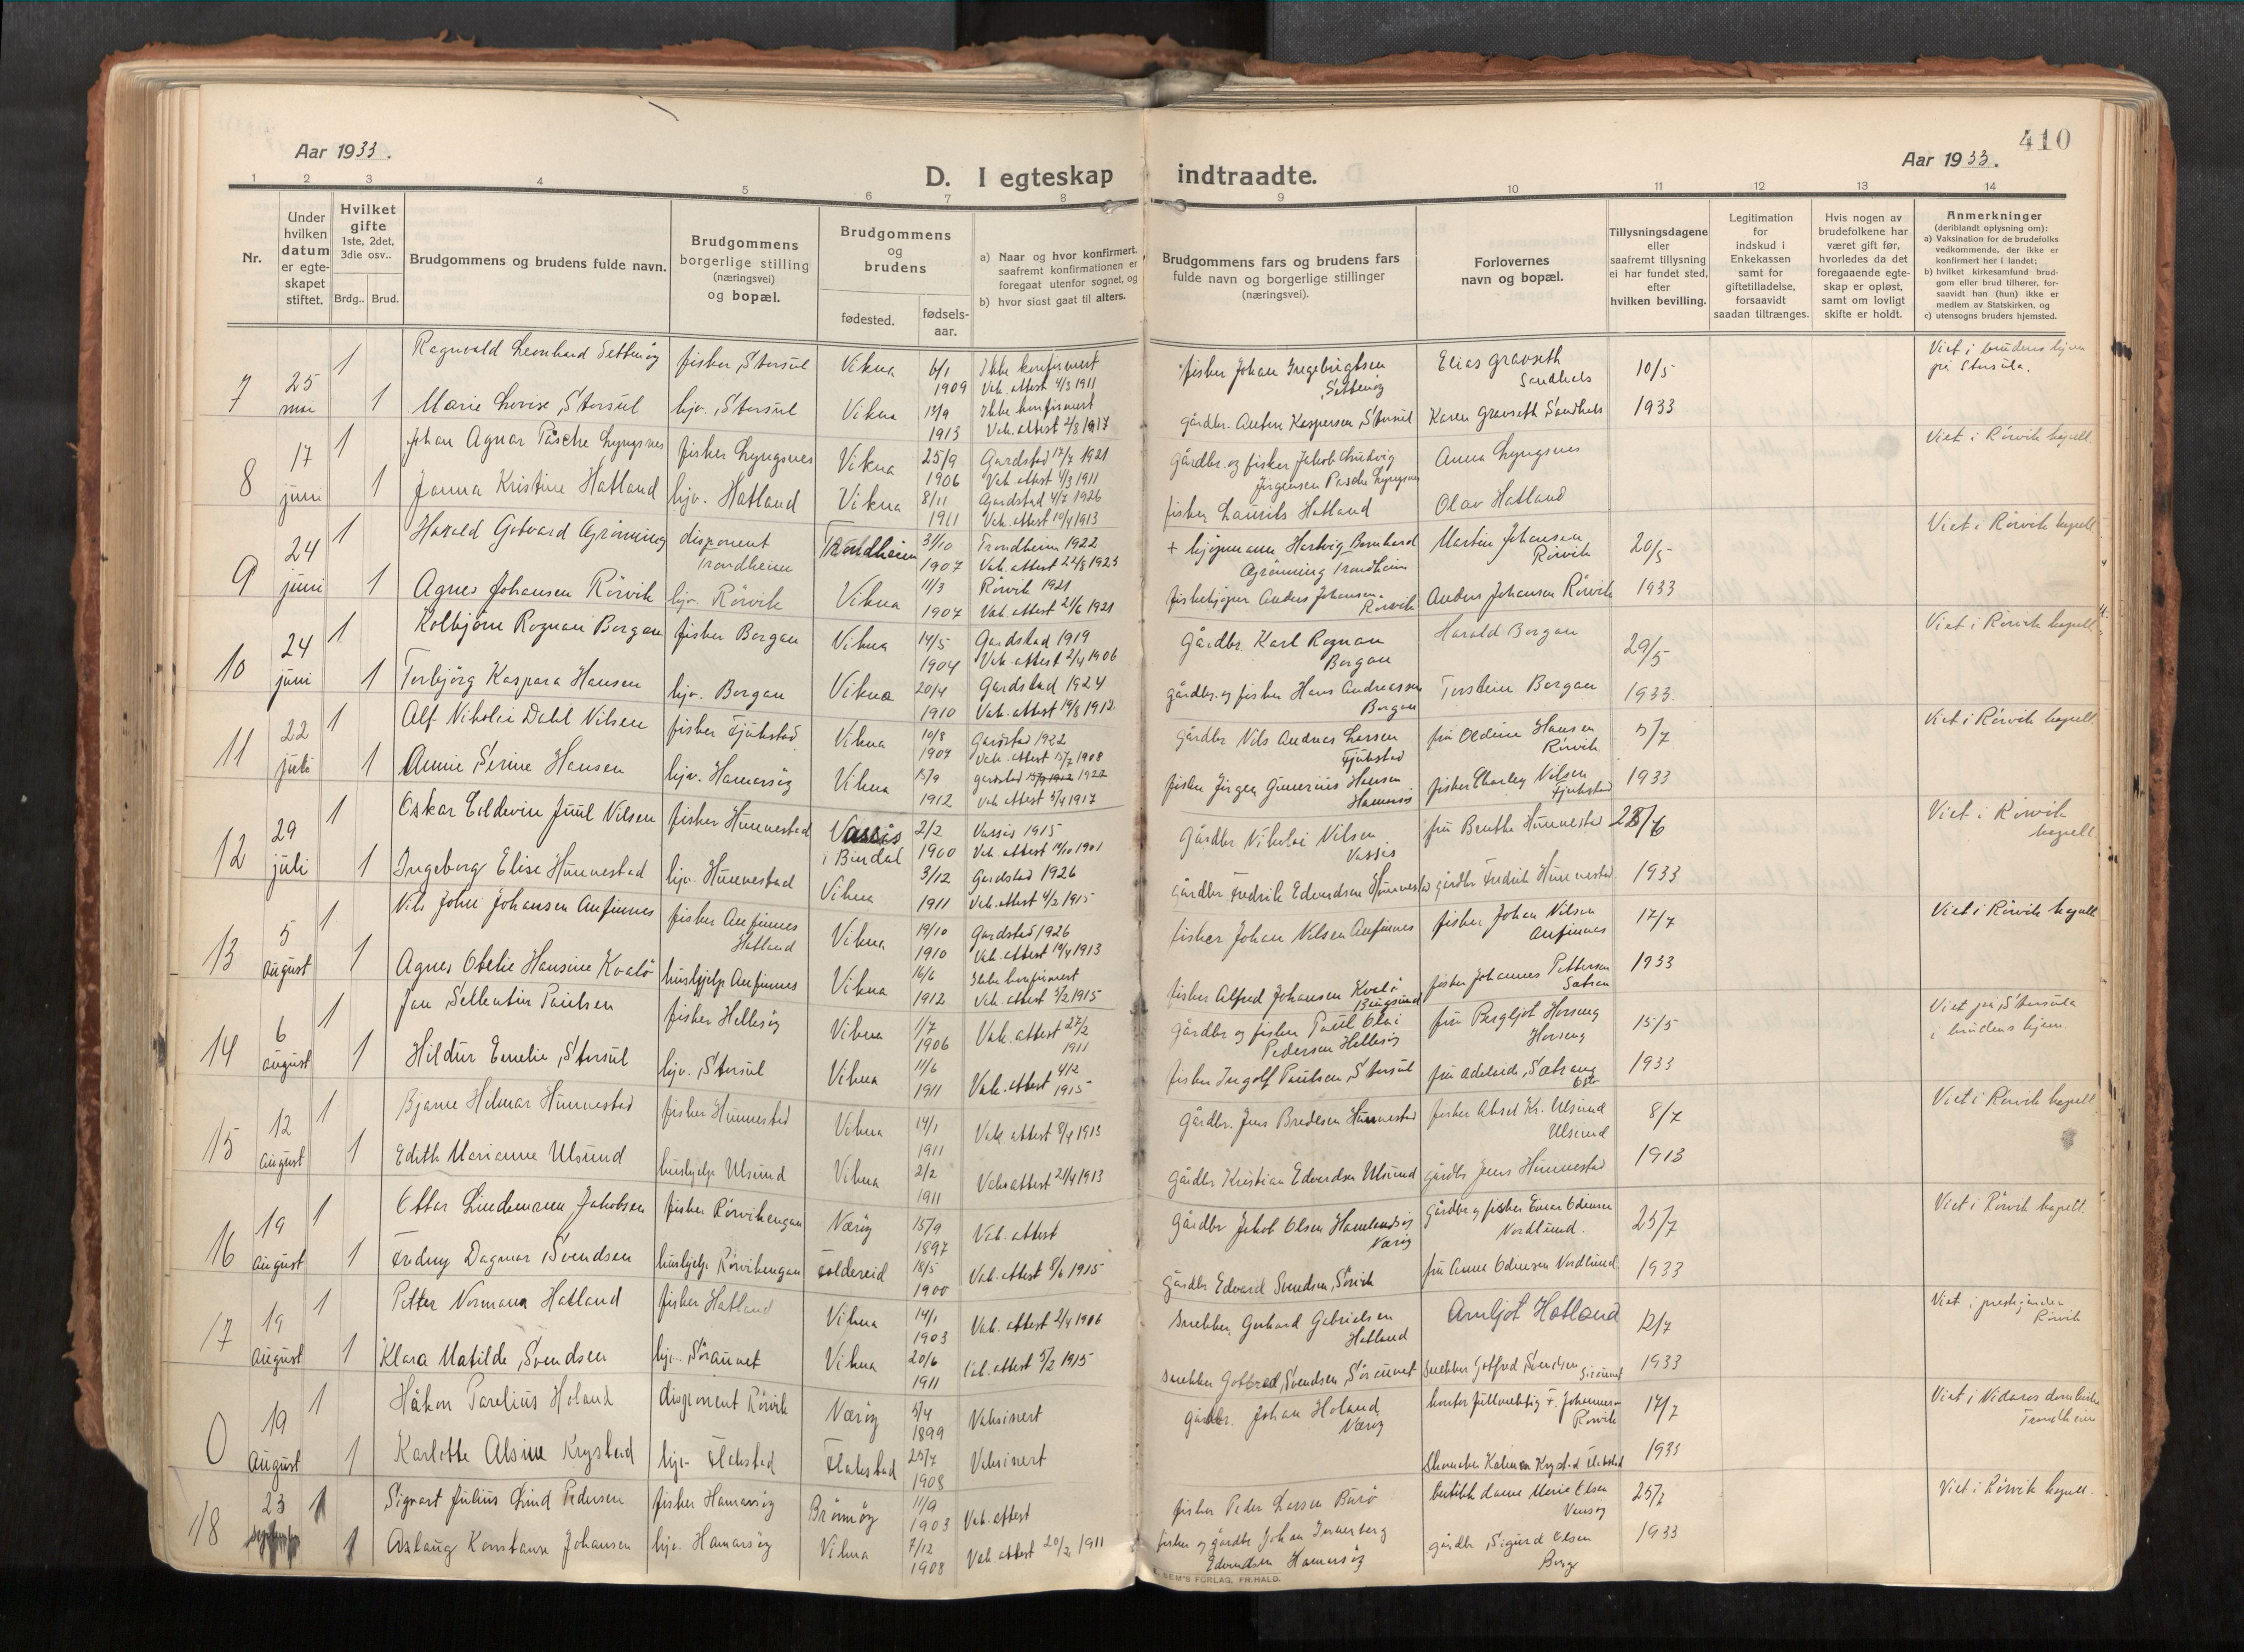 Aar 1933.
410
Aar 1933.
D. I egteskap indtraadte.
1 2 3 4 5 6 7 8 9 10 11 12 13 14
Nr.
Under hvilken datum er egte-skapet stiftet.
Hvilket gifte 1ste, 2det, 3die osv..
Brdg.. Brud.
Brudgommens og brudens fulde navn.
Brudgommens borgerlige stilling (næringsvei) og bopæl.
Brudgommens og brudens
fødested.
fødsels-aar.
a) Naar og hvor konfirmert, saafremt konfirmationen er foregaat utenfor sognet, og
b) hvor sidst gaat til alters.
Brudgommens fars og brudens fars fulde navn og borgerlige stillinger (næringsvei).
Forlovernes navn og bopæl.
Tillysningsdagene eller saafremt tillysning ei har fundet sted, efter hvilken bevilling.
Legitimation for indskud i Enkekassen samt for giftetilladelse, forsaavidt saadan tiltrænges.
Hvis nogen av brudefolkene har været gift før, hvorledes da det foregaaende egte-skap er opløst, samt om lovligt skifte er holdt.
Anmerkninger
(deriblandt oplysning om):
a) Vaksination for de brudefolks vedkommende, der ikke er konfirmert her i landet;
b) hvilket kirkesamfund brud-gom eller brud tilhører, for-saavidt han (hun) ikke er medlem av Statskirken, og
c) utensogns bruders hjemsted.
7 25 mai 1 Ragnvald Leonhard Setteøy fisker, Storsul Vikna 6/1 1909 Ikke konfirmert Vak. attest 4/3 1911 fisker Johan Ingebrigtsen Setterøy Elias Gravseth Sandhals 10/5 Viet i brudens hjem på Storsula.
1 Marie Lovise Storsul hjv. Storsul Vikna 13/9 1913 Ikke konfirmert Vak. attest 2/8 1917 gårdbr. Anton Kaspersen, Storsul Karen Gravseth Sandhals 1933
8 17 juni 1 Johan Agnar Pasche Lyngsnes fisker Lyngsnes Vikna 25/9 1906 Gardstad 17/7 1921 Vak. attest 4/3 1911 gårdbr. og fisker Jakob Ludvig Jørgensen Pasche Lyngsnes Anna Lyngsnes Viet i Rørvik kapell
1 Janna Kristine Hatland hjv. Hatland Vikna 8/11 1911 Gardstad 4/7 1926 Vak. attest 10/4 1913 fisker Laurits Hatland Olav Hatland
9 24 juni 1 Harald Gotvard Grønning disponent Trondheim Trondheim 31/10 1907 Trondheim 1922 Vak. attest 22/8 1923 + kjøpmann Hartvig Bernhard Grønning Trondheim Martin Johansen Rørvik 20/5 Viet i Rørvik kapell
1 Agnes Johansen Rørvik hjv. Rørvik Vikna 11/3 1907 Rørvik 1921 Vak. attest 21/6 1921 fiskekjøper Anders Johansen Rørvik Anders Johansen Rørvik 1933
10 24 juni 1 Kolbjørn Roznan Borgan fisker Borgan Vikna 14/5 1904 Gardstad 1919 Vak. attest 2/4 1906 Gårdbr. Karl Roznan Borgan Harald Borgan 29/5 Viet i Rørvik kapell
1 Torbjørg Kaspara Hansen hjv. Borgan Vikna 20/4 1910 Gardstad 1924 Vak. attest 19/8 1912 gårdbr. og fisker Hans Andreassen Borgan Torstein Borgan 1933.
11 22 juli 1 Alf Nikolai Dahl Nilsen fisker Fjukstad Vikna 10/8 1907 Gardstad 1922 Vak. attest 15/7 1908 gårdbr Nils Andreas Larsen Fjukstad fru Oldine Hansen Rørvik 5/7 Viet i Rørvik kapell
1 Annie Serine Hansen hjv. Hamarøy Vikna 15/9 1912 Gardstad 1927 Vak attest 5/4 1917 fisker Jørgen Gunerius Hansen fisker Charley Nilsen Fjukstad 1933
12 29 juli 1 Oskar Eldevin Juul Nilsen fisker Hunnestad Vassås i Bindal 2/2 1900 Vassås 1915 Vak. attest 14/10 1901 Gårdbr Nikolai Nilsen Vassås fru Benthe Hunnestad 28/6 Viet i Rørvik kapell
1 Ingeborg Elise Hunnestad hjv. Hunnestad Vikna 3/12 1911 Gardstad 1926 Vak. attest 4/2 1915 gårdbr. Fredrik Edvardsen Hunnestad gårdbr Fredrik Hunnestad 1933
13 5 august 1 Nils John Johansen Anfinnes fisker Anfinnes Hatland Vikna 19/10 1910 Gardstad 1926 Vak. attest 19/4 1913 fisker Johan Nilsen Anfinnes fisker Johan Nilsen Anfinnes 17/7 Viet i Rørvik kapell
1 Agnes Otelie Hansine Kvalø hushjelp Anfinnes Vikna 16/6 1912 Ikke konfirmert Vak. attest 5/2 1915 fisker Alfred Johansen Kvalø fisker Johannes Pettersen 1933
14 6 august 1 Jan Sellentin Paulsen fisker Hellesøy Vikna 1/7 1906 Vak. attest 27/2 1911 gårdbr og fisker Paul Olai Pedersen Hellesøy fru Bergljot Horseng Horseng 15/5 Viet på Storsula i brudens hjem.
1 Hildur Emelie Storsul hjv. Storsul Vikna 11/6 1911 Vak. attest 4/2 1915 fisker Ingolf Paulsen, Storsul fru Adelaide Sætrang 1933
15 12 august 1 Bjarne Hilmar Hunnestad fisker Hunnestad Vikna 14/1 1911 Vak attest 8/4 1913 gårdbr. Jens Bredesen Hunnestad fisker Aksel Kr. Ulsund Ulsund 8/7 Viet i Rørvik kapell
1 Edith Marianne Ulsund hushjelp Ulsund Vikna 2/2 1911 Vak. attest 21/4 1913 gårdbr Kristian Edvardsen Ulsund gårdbr Jens Hunnestad 1913
16 19 august 1 Ottar Lindemann Jakobsen fisker Rørvikengan Nærøy 15/9 1897 Vak. attest Gårdbr Jakob Olsen Hamlandsøy Nærøy gårdbr og fisker Einar Odinsen Nordlund. 25/7 Viet i Rørvik kapell.
1 Frodny Dagmar Svendsen hushjelp Rørvikengan Foldereid 18/5 1900 Vak. attest 8/6 1915 gårdbr Edvard Svendsen, Sørvik fru Anne Odinsen Nordlund 1933
17 19 august 1 Petter Normann Hatland fisker Hatland Vikna 14/1 1903 Vak. attest 2/4 1906 snekker Gerhard Gabrielsen Hatland Arnljot Hatland 12/7 Viet i prestegården Rørvik
1 Klara Matilde Svendsen hjv. Søraunet Vikna 20/6 1911 Vak. attest 5/2 1915 snekker Gotfred Svendsen, Søraunet snekker Gotfred Svendsen Søraunet 1933
0 19 august 1 Håkon Parelius Holand disponent Rørvik Nærøy 5/4 1899 Vaksinert gårdbr. Johan Holand Nærøy kontorfullmektig F. Johannesen Rørvik 17/7 Viet i Nidaros domkirke Trondheim
1 Karlotte Alsine Krystad hjv. Flakstad Flakstad 25/7 1908 Vaksinert 1933
18 23 september 1 Sigvart Julius Lind Pedersen fisker Hamarøy Brønnøy 11/9 1903 Vak. attest fisker Peder Larsen Burø butikkdame Marie Olsen 25/7 Viet i Rørvik kapell.
1 Aslaug Konstanse Johansen hjv. Hamarøy Vikna 7/12 1908 Vak. attest 20/2 1911 fisker og gårdbr Johan Edvardsen Hamarøy gårdbr Sigurd Olsen Borge 1933
SEM'S FORLAG, FR.HALD.